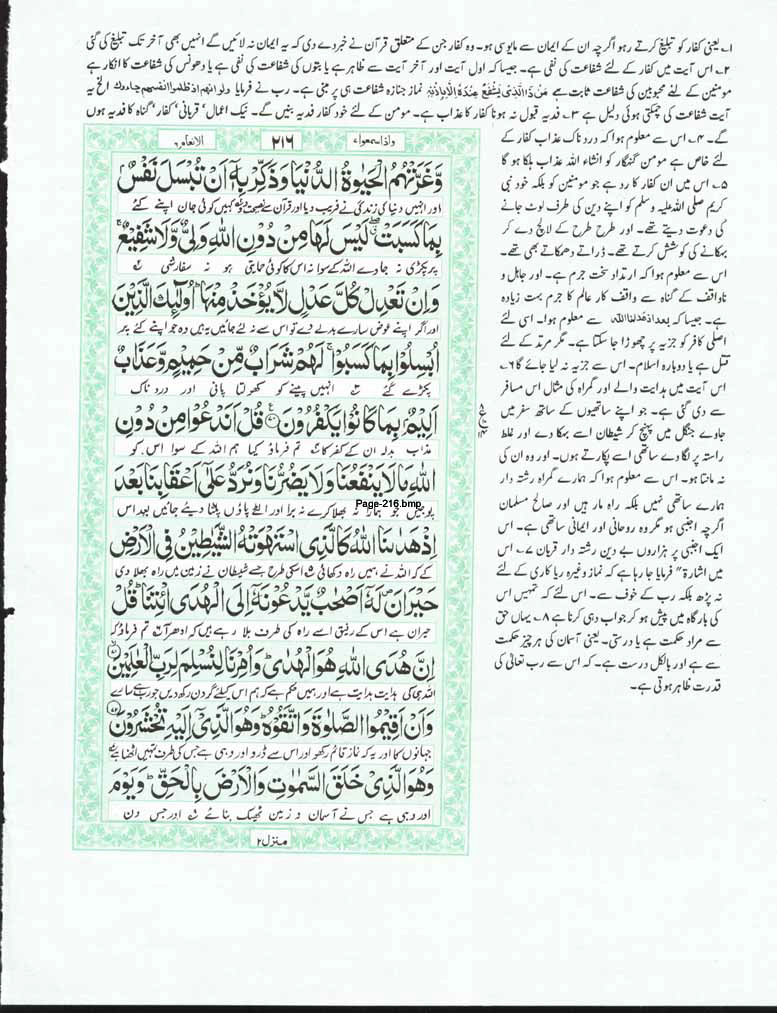 ۱۔ یعنی کفار کو تبلیغ کرتے رہو اگرچہ ان کے ایمان سے مایوسی ہو۔ وہ کفار جن کے متعلق قرآن نے خبر دے دی کہ یہ ایمان نہ لائیں گے انہیں بھی آخر تک تبلیغ کی گئی
۲۔ اس آیت میں کفار کے لئے شفاعت کی نفی ہے۔ جیسا کہ اول آیت اور آخر آیت سے ظاہر ہے یا بتوں کی شفاعت کی نفی ہے یا دھونس کی شفاعت کا انکار ہے
مومنین کے لئے محبوبین کی شفاعت ثابت ہے مَنْ ذَا الَّذِیْ یَشْفَعُ عِنْدَهٗ اِلَّا بِاِذْنِهٖ نماز جنازہ شفاعت ہی پر مبنی ہے۔ رب نے فرمایا ولو انهم اذ ظلموا انفسهم جاءوك الخ یہ
آیت شفاعت کی چمکتی ہوئی دلیل ہے ۳۔ فدیہ قبول نہ ہونا کفار کا عذاب ہے۔ مومن کے لئے خود کفار فدیہ بنیں گے۔ نیک اعمال، قربانی، کفار، گناہ کا فدیہ ہوں
گے۔ ۴۔ اس سے معلوم ہوا کہ دردناک عذاب کفار کے
لئے خاص ہے مومن گنہگار کو انشاء اللہ عذاب ہلکا ہو گا
۵۔ اس میں ان کفار کا رد ہے جو مومنین کو بلکہ خود نبی
کریم صلی اللہ علیہ وسلم کو اپنے دین کی طرف لوٹ جانے
کی دعوت دیتے تھے۔ اور طرح طرح کے لالچ دے کر
بہکانے کی کوشش کرتے تھے۔ ڈراتے دھمکاتے بھی تھے۔
اس سے معلوم ہوا کہ ارتداد سخت جرم ہے۔ اور جاہل و
ناواقف کے گناہ سے واقف کار عالم کا جرم بہت زیادہ
ہے۔ جیسا کہ بعد اذ هدانا الله سے معلوم ہوا۔ اسی لئے
اصلی کافر کو جزیہ پر چھوڑا جا سکتا ہے۔ مگر مرتد کے لئے
قتل ہے یا دوبارہ اسلام۔ اس سے جزیہ نہ لیا جائے گا ۶۔
اس آیت میں ہدایت والے اور گمراہ کی مثال اس مسافر
سے دی گئی ہے۔ جو اپنے ساتھیوں کے ساتھ سفر میں
جاوے جنگل میں پہنچ کر شیطان اسے بہکا دے اور غلط
راستہ پر لگا دے ساتھی اسے پکارتے ہوں۔ اور وہ ان کی
نہ مانتا ہو۔ اس سے معلوم ہوا کہ ہمارے گمراہ رشتہ دار
ہمارے ساتھی نہیں بلکہ راہ مار ہیں اور صالح مسلمان
اگرچہ اجنبی ہو مگر وہ روحانی اور ایمانی ساتھی ہے۔ اس
ایک اجنبی پر ہزاروں بے دین رشتہ دار قربان ۷۔ اس
میں اشارۃً فرمایا جا رہا ہے کہ نماز وغیرہ ریا کاری کے لئے
نہ پڑھو بلکہ رب کے خوف سے۔ اس لئے کہ تمہیں اس
کی بارگاہ میں پیش ہو کر جواب دہی کرنا ہے ۸۔ یہاں حق
سے مراد حکمت ہے یا درستی۔ یعنی آسمان کی ہر چیز حکمت
سے ہے اور بالکل درست ہے۔ کہ اس سے رب تعالیٰ کی
قدرت ظاہر ہوتی ہے۔
واذا سمعوا ۷ ۲۱۶ الانعام ۶
وَّغَرَّتْهُمُ الْحَیٰوةُ الدُّنْیَا وَذَكِّرْ بِهٖۤ اَنْ تُبْسَلَ نَفْسٌۢ
اور انہیں دنیا کی زندگی نے فریب دیا اور قرآن سے نصیحت دو کہ کہیں کوئی جان اپنے کئے
بِمَا كَسَبَتْ لَیْسَ لَهَا مِنْ دُوْنِ اللّٰهِ وَلِیٌّ وَّلَا شَفِیْعٌ
پر پکڑی نہ جاوے اللہ کے سوا نہ اس کا کوئی حمایتی ہو نہ سفارشی
وَاِنْ تَعْدِلْ كُلَّ عَدْلٍ لَّا یُؤْخَذْ مِنْهَا اُولٰٓىِٕكَ الَّذِیْنَ
اور اگر اپنے عوض سارے بدلے دے تو اس سے نہ لئے جائیں یہ ہیں وہ جو اپنے کئے پر
اُبْسِلُوْا بِمَا كَسَبُوْا لَهُمْ شَرَابٌ مِّنْ حَمِیْمٍ وَّعَذَابٌ
پکڑے گئے انہیں پینے کو کھولتا پانی اور دردناک
اَلِیْمٌۢ بِمَا كَانُوْا یَكْفُرُوْنَ قُلْ اَنَدْعُوْا مِنْ دُوْنِ
عذاب بدلہ ان کے کفر کا تم فرماؤ کیا ہم اللہ کے سوا اس کو
اللّٰهِ مَا لَا یَنْفَعُنَا وَلَا یَضُرُّنَا وَنُرَدُّ عَلٰۤی اَعْقَابِنَا بَعْدَ
پوجیں جو ہمارا نہ بھلا کرے نہ برا اور الٹے پاؤں پلٹا دیئے جائیں بعد اس
Page-216.bmp
اِذْ هَدٰىنَا اللّٰهُ كَالَّذِی اسْتَهْوَتْهُ الشَّیٰطِیْنُ فِی الْاَرْضِ
کے کہ اللہ نے ہمیں راہ دکھائی اسکی طرح جسے شیطان نے زمین میں راہ بھلا دی
حَیْرَانَ لَهٗۤ اَصْحٰبٌ یَّدْعُوْنَهٗۤ اِلَی الْهُدَی ائْتِنَا قُلْ
حیران ہے اس کے رفیق اسے راہ کی طرف بلا رہے ہیں کہ ادھر آ تم فرماؤ کہ
اِنَّ هُدَی اللّٰهِ هُوَ الْهُدٰی وَاُمِرْنَا لِنُسْلِمَ لِرَبِّ الْعٰلَمِیْنَ
اللہ ہی کی ہدایت ہدایت ہے اور ہمیں حکم ہے کہ ہم اس کیلئے گردن رکھ دیں جو رب ہے سارے
وَاَنْ اَقِیْمُوا الصَّلٰوةَ وَاتَّقُوْهُ وَهُوَ الَّذِیْۤ اِلَیْهِ تُحْشَرُوْنَ
جہانوں کا اور یہ کہ نماز قائم رکھو اور اس سے ڈرو اور وہی ہے جس کی طرف تمہیں اٹھنا ہے
وَهُوَ الَّذِیْ خَلَقَ السَّمٰوٰتِ وَالْاَرْضَ بِالْحَقِّ وَیَوْمَ
اور وہی ہے جس نے آسمان و زمین ٹھیک بنائے اور جس دن
منزل ۲